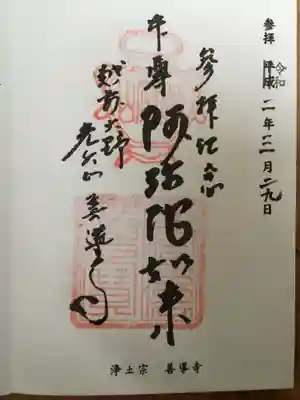 参拝 平成 令和 二年三月二九日
参拝記念
本尊 阿弥陀如来
越前大野
善導寺
浄土宗 善導寺